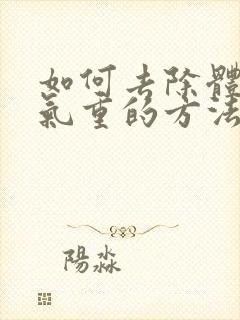 如何去除體
氣重的方法
陽淼